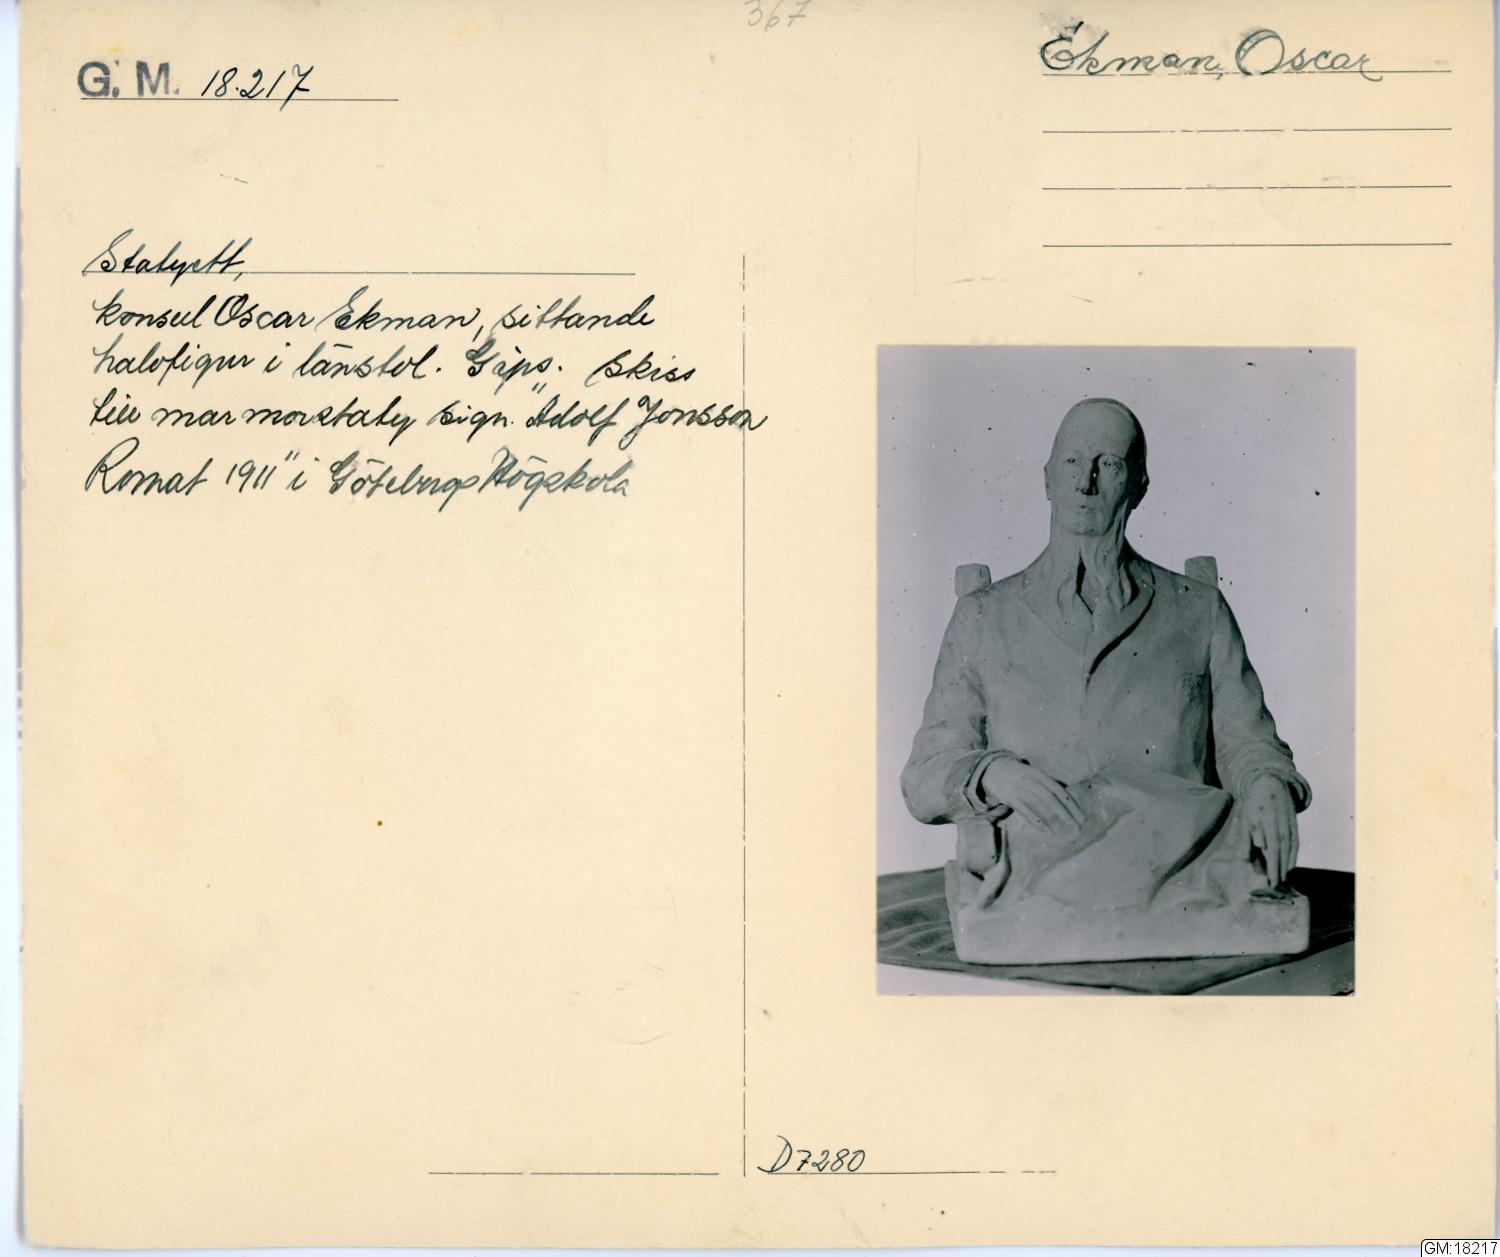 367
Ekman, Oscar
G. M. 18.217
Statyett,
konsul Oscar Ekman, sittande
halvfigur i länstol. Gips. Skiss
till marmorstaty sign. "Adolf Jonsson
Romat 1911" i Göteborgs Högskola
D7280
GM:18217